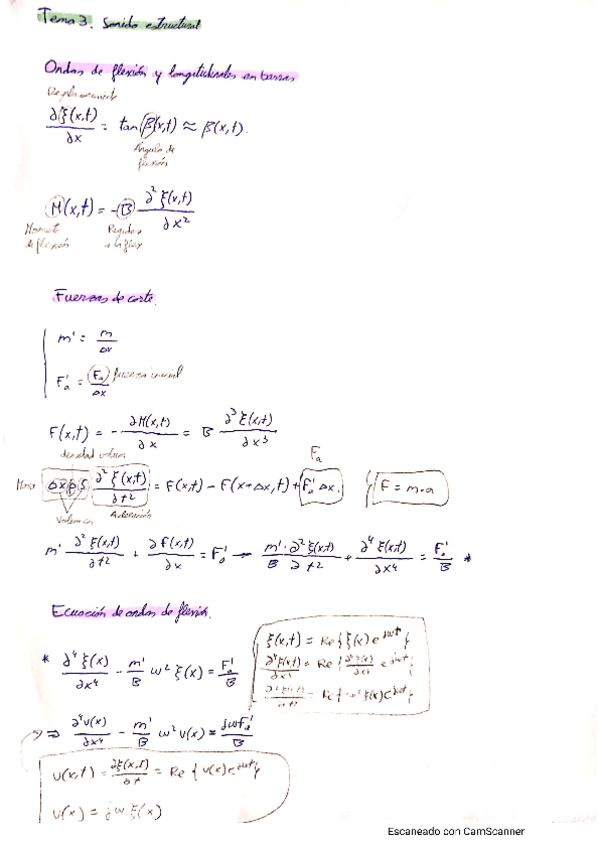 Tema 3. Sonido estructural
Ondas de flexión y longitudinales en barras
Desplazamiento
∂ξ(x,t)/∂x = tan β(x,t) ≈ β(x,t).
Ángulo de
flexión
M(x,t) = -B ∂²ξ(x,t)/∂x²
Momento
de flexión
Rigidez
a la flex
Fuerzas de corte.
m' = m/Δx
F'a = Fa/Δx fuerza inercial
F(x,t) = - ∂M(x,t)/∂x = B ∂³ξ(x,t)/∂x³
densidad volum
Fa
Masa Δx ρ S ∂²ξ(x,t)/∂t² = F(x,t) - F(x+Δx,t) + F'a Δx. F = m·a
Volumen
Aceleración
m' ∂²ξ(x,t)/∂t² + ∂F(x,t)/∂x = F'a → m'/B · ∂²ξ(x,t)/∂t² + ∂⁴ξ(x,t)/∂x⁴ = F'a/B *
Ecuación de ondas de flexión.
ξ(x,t) = Re{ξ(x)e^jωt}
* ∂⁴ξ(x)/∂x⁴ - m'/B ω² ξ(x) = F'a/B
∂⁴ξ(x,t)/∂x⁴ = Re{∂⁴ξ(x)/∂x⁴ e^jωt}
∂²ξ(x,t)/∂t² = Re{-ω²ξ(x)e^jωt}
⇒ ∂⁴v(x)/∂x⁴ - m'/B ω² v(x) = jωF'a/B
v(x,t) = ∂ξ(x,t)/∂t = Re{v(x)e^jωt}
v(x) = jω ξ(x)
Escaneado con CamScanner